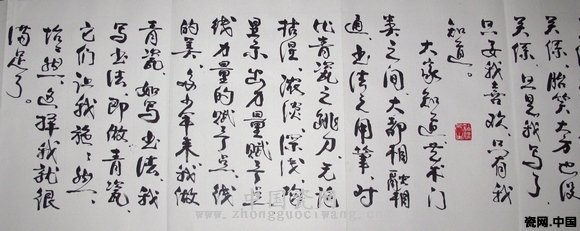 关系、胎大方也没
关系、但是我写了
只要我喜欢、只有我
知道。
大家知道艺术门
类之间、大都相融相
通、书法之用笔、对
比青瓷之跳刀、无论
枯湿、浓淡、深浅、
显示出力量赋予点
线力量的赋予点、线
的美。多少年来我做
青瓷、如写书法、我
写书法即做青瓷、
它们让我施施然、
怡怡然、这样我就很
满足了。
中国瓷网
www.zhongguociwang.cn
瓷网.中国